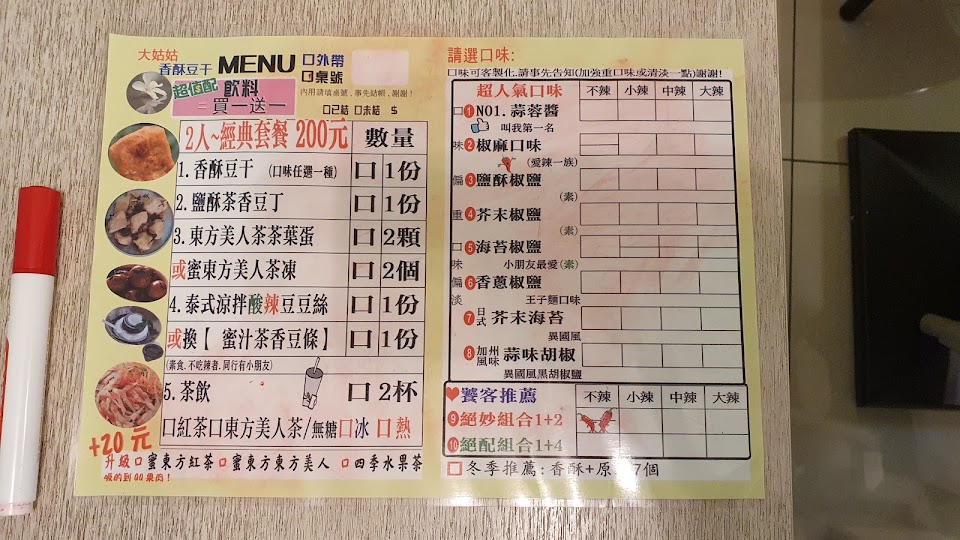 大姑姑
香酥豆干 MENU 口外帶
口桌號
內用請填桌號、事先結帳、謝謝!
超值配 飲料
=買一送一 口已結 口未結 $
2人~經典套餐 200元 數量
1. 香酥豆干 (口味任選一種) 口 1份
2. 鹽酥茶香豆丁 口 1份
3. 東方美人茶茶葉蛋 口 2顆
或蜜東方美人茶凍 口 2個
4. 泰式涼拌酸辣豆豆絲 口 1份
或換【 蜜汁茶香豆條 】 口 1份
(素食.不吃辣者.同行有小朋友)
5. 茶飲 口 2杯
口紅茶口東方美人茶/無糖口冰 口熱
+20元
升級口蜜東方紅茶口蜜東方東方美人 口四季水果茶
吸的到QQ果肉!
請選口味:
口味可客製化,請事先告知(加強重口味或清淡一點)謝謝!
超人氣口味 不辣 小辣 中辣 大辣
口味偏重
口味偏淡
1 NO1. 蒜蓉醬
叫我第一名
2 椒麻口味
(愛辣一族)
3 鹽酥椒鹽
(素)
4 芥末椒鹽
(素)
5 海苔椒鹽
小朋友最愛(素)
6 香蔥椒鹽
王子麵口味
7 日式 芥末海苔
異國風
8 加州風味 蒜味胡椒
異國風黑胡椒鹽
饕客推薦 不辣 小辣 中辣 大辣
9 絕妙組合1+2
10 絕配組合1+4
口冬季推薦:香酥+原 7個